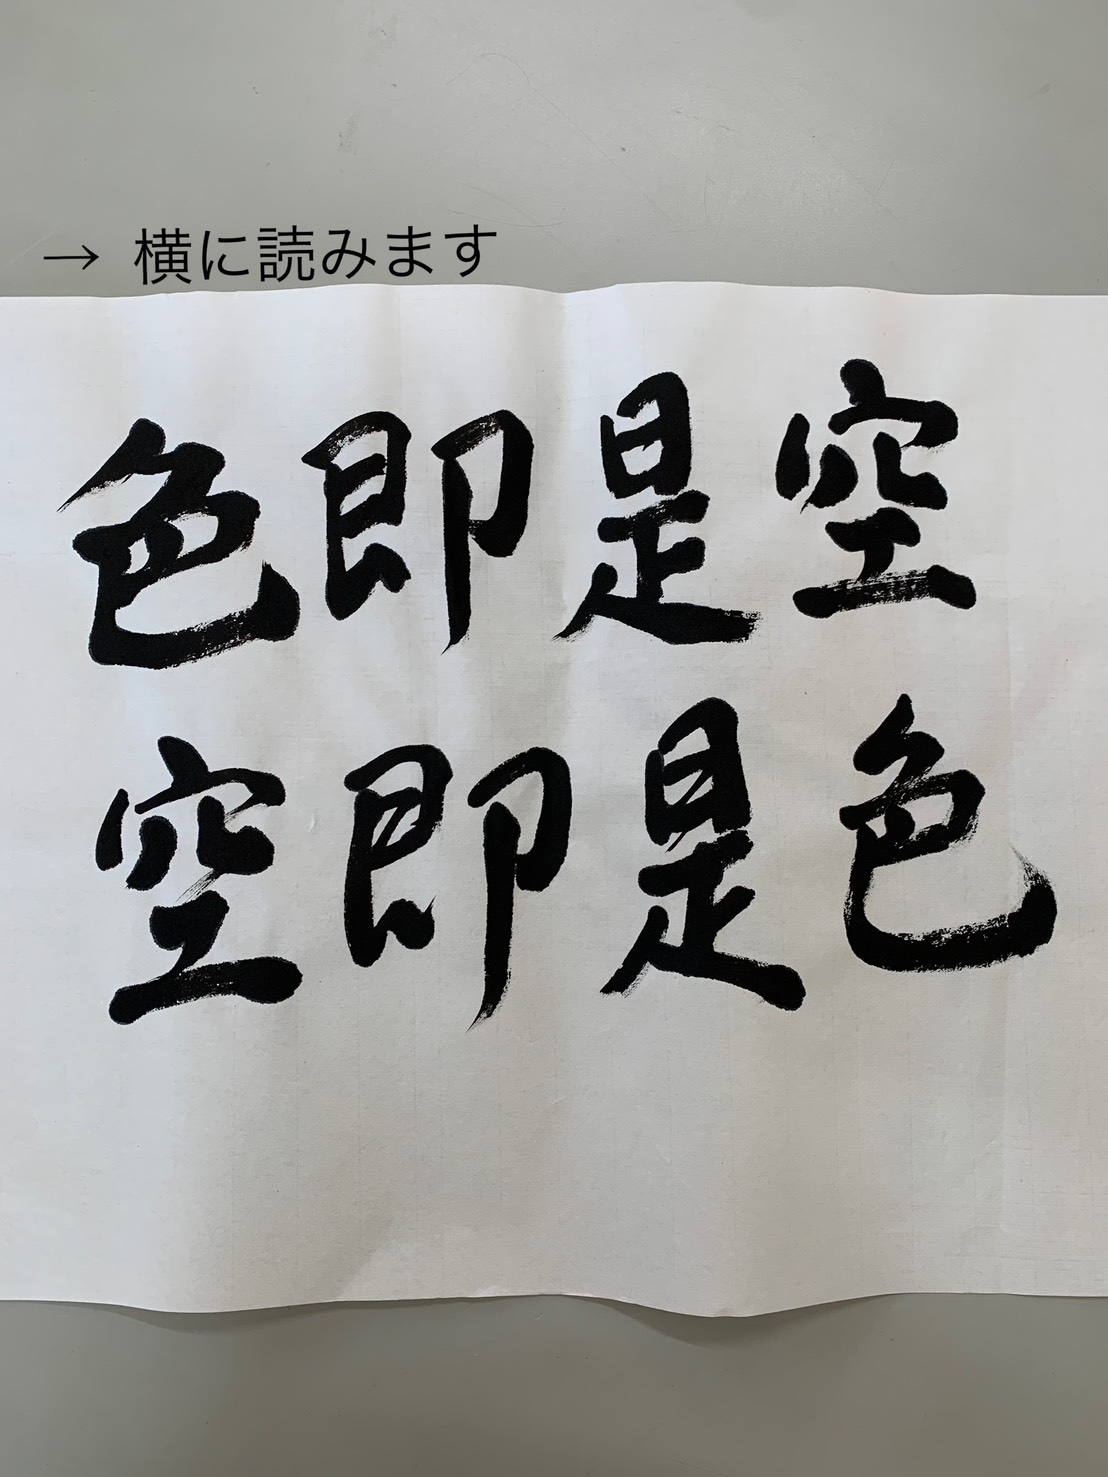 → 横に読みます
色即是空
空即是色